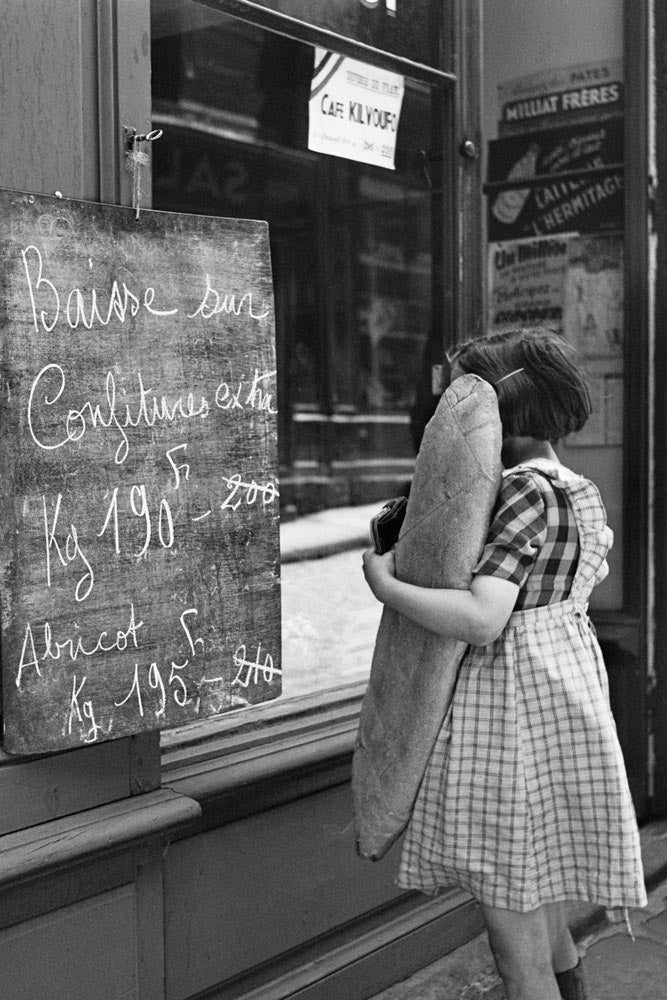 Baisse sur
Confitures extra
Kg 190 F - 200
Abricot
Kg 195 F - 210
CAFÉ KILVOUFO
PATES
MILLIAT FRÈRES
L'HERMITAGE